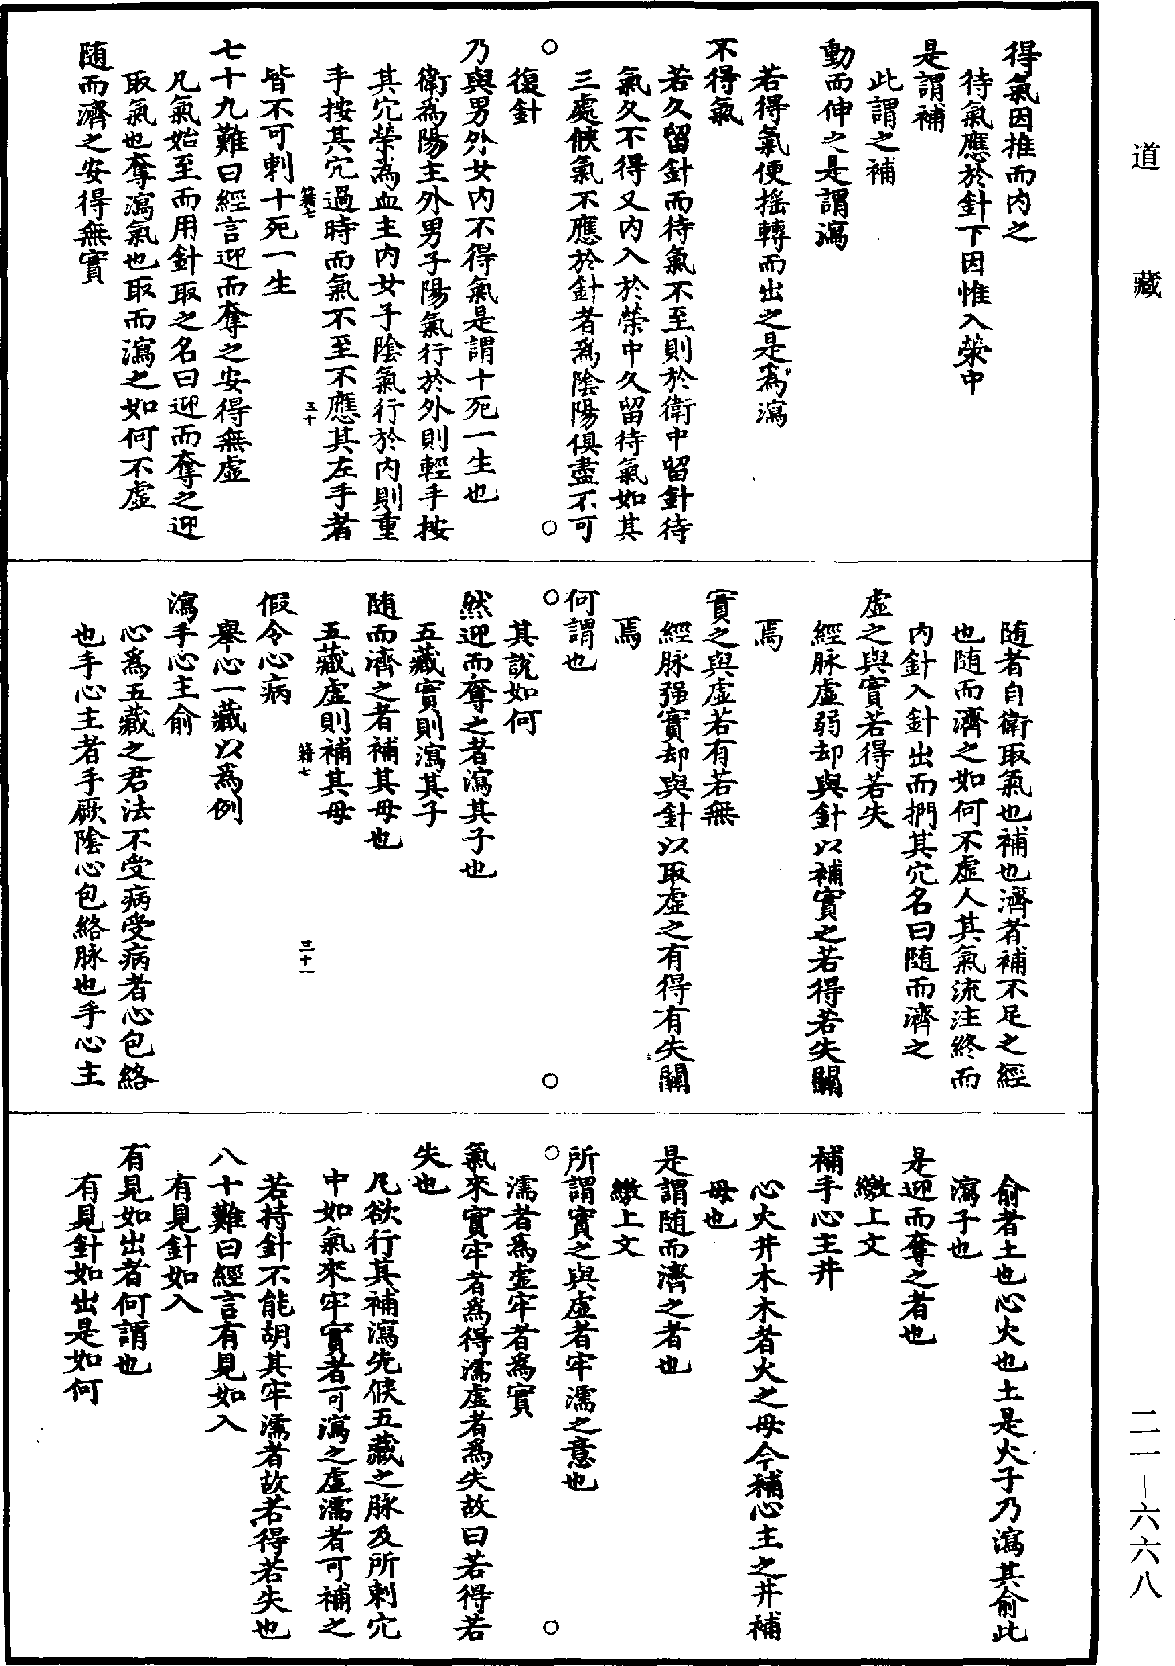 道藏
得氣因推而內之
待氣應於針下因惟入榮中
是謂補
此謂之補
動而伸之是謂瀉
若得氣便摇轉而出之是爲瀉
不得氣
若久留針而待氣不至則於衛中留針待
氣久不得又內入於榮中久留待氣如其
三處候氣不應於針者爲陰陽俱盡不可
復針
乃與男外女內不得氣是謂十死一生也
衛爲陽主外男子陽氣行於外則輕手按
其穴榮為血主內女子陰氣行於內則重
手按其穴過時而氣不至不應其左手者
籍七 三十
皆不可刺十死一生
七十九難曰經言迎而奪之安得無虛
凡氣始至而用針取之名曰迎而奪之迎
取氣也奪瀉氣也取而瀉之如何不虛
随而濟之安得無實
随者自衛取氣也補也濟者補不足之經
也随而濟之如何不虛人其氣流注終而
內針入針出而捫其穴名曰随而濟之
虛之與實若得若失
經脉虛弱却與針以補實之若得若失關
焉
實之與虛若有若無
經脉强實却與針以取虛之有得有失關
焉
何謂也
其說如何
然迎而奪之者瀉其子也
五藏實則瀉其子
随而濟之者補其母也
五藏虛則補其母
籍七 三十一
假令心病
舉心一藏以為例
瀉手心主俞
心爲五藏之君法不受病受病者心包絡
也手心主者手厥陰心包絡脉也手心主
俞者土也心火也土是火子乃瀉其俞此
瀉子也
是迎而奪之者也
繳上文
補手心主井
心火井木木者火之母今補心主之井補
母也
是謂随而濟之者也
繳上文
所謂實之與虛者牢濡之意也
濡者為虛牢者為實
氣來實牢者爲得濡虛者爲失故曰若得若
失也
凡欲行其補瀉先候五藏之脉及所刺穴
中如氣來牢實者可瀉之虛濡者可補之
若持針不能胡其牢濡者故若得若失也
八十難曰經言有見如入
有見針如入
有見如出者何謂也
有見針如出是如何
二一—六六八